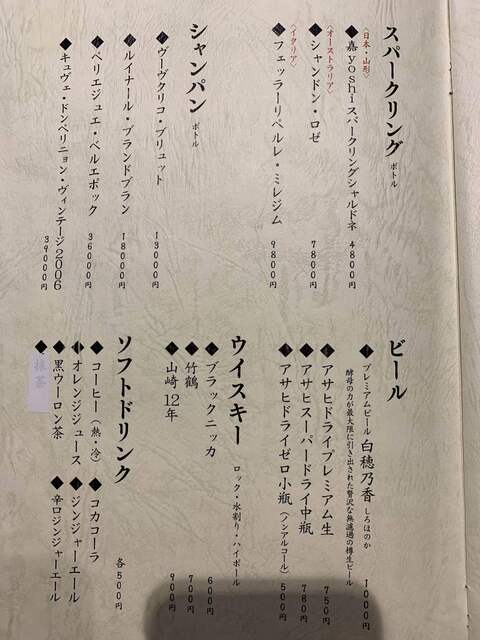 スパークリング ボトル
〈日本・山形〉
◆嘉yoshiスパークリングシャルドネ 4800円
〈オーストラリア〉
◆シャンドン・ロゼ 7800円
〈イタリア〉
◆フェッラーリペルレ・ミレジム 9800円
シャンパン ボトル
◆ヴーヴクリコ・ブリュット 13000円
◆ルイナール・ブランドブラン 18000円
◆ペリエジュエ・ベルエポック 36000円
◆キュヴェ・ドンペリニョン・ヴィンテージ2006 39000円
ビール
◆プレミアムビール 白穂乃香 しろほのか 1000円
酵母の力が最大限に引き出された贅沢な無濾過の樽生ビール
◆アサヒドライプレミアム生 750円
◆アサヒスーパードライ中瓶 780円
◆アサヒドライゼロ小瓶(ノンアルコール) 500円
ウイスキー ロック・水割り・ハイボール
◆ブラックニッカ 600円
◆竹鶴 700円
◆山崎12年 900円
ソフトドリンク
◆コーヒー(熱・冷)
◆オレンジジュース
◆黒ウーロン茶
◆抹茶
◆コカコーラ
◆ジンジャーエール
◆辛口ジンジャーエール
各500円